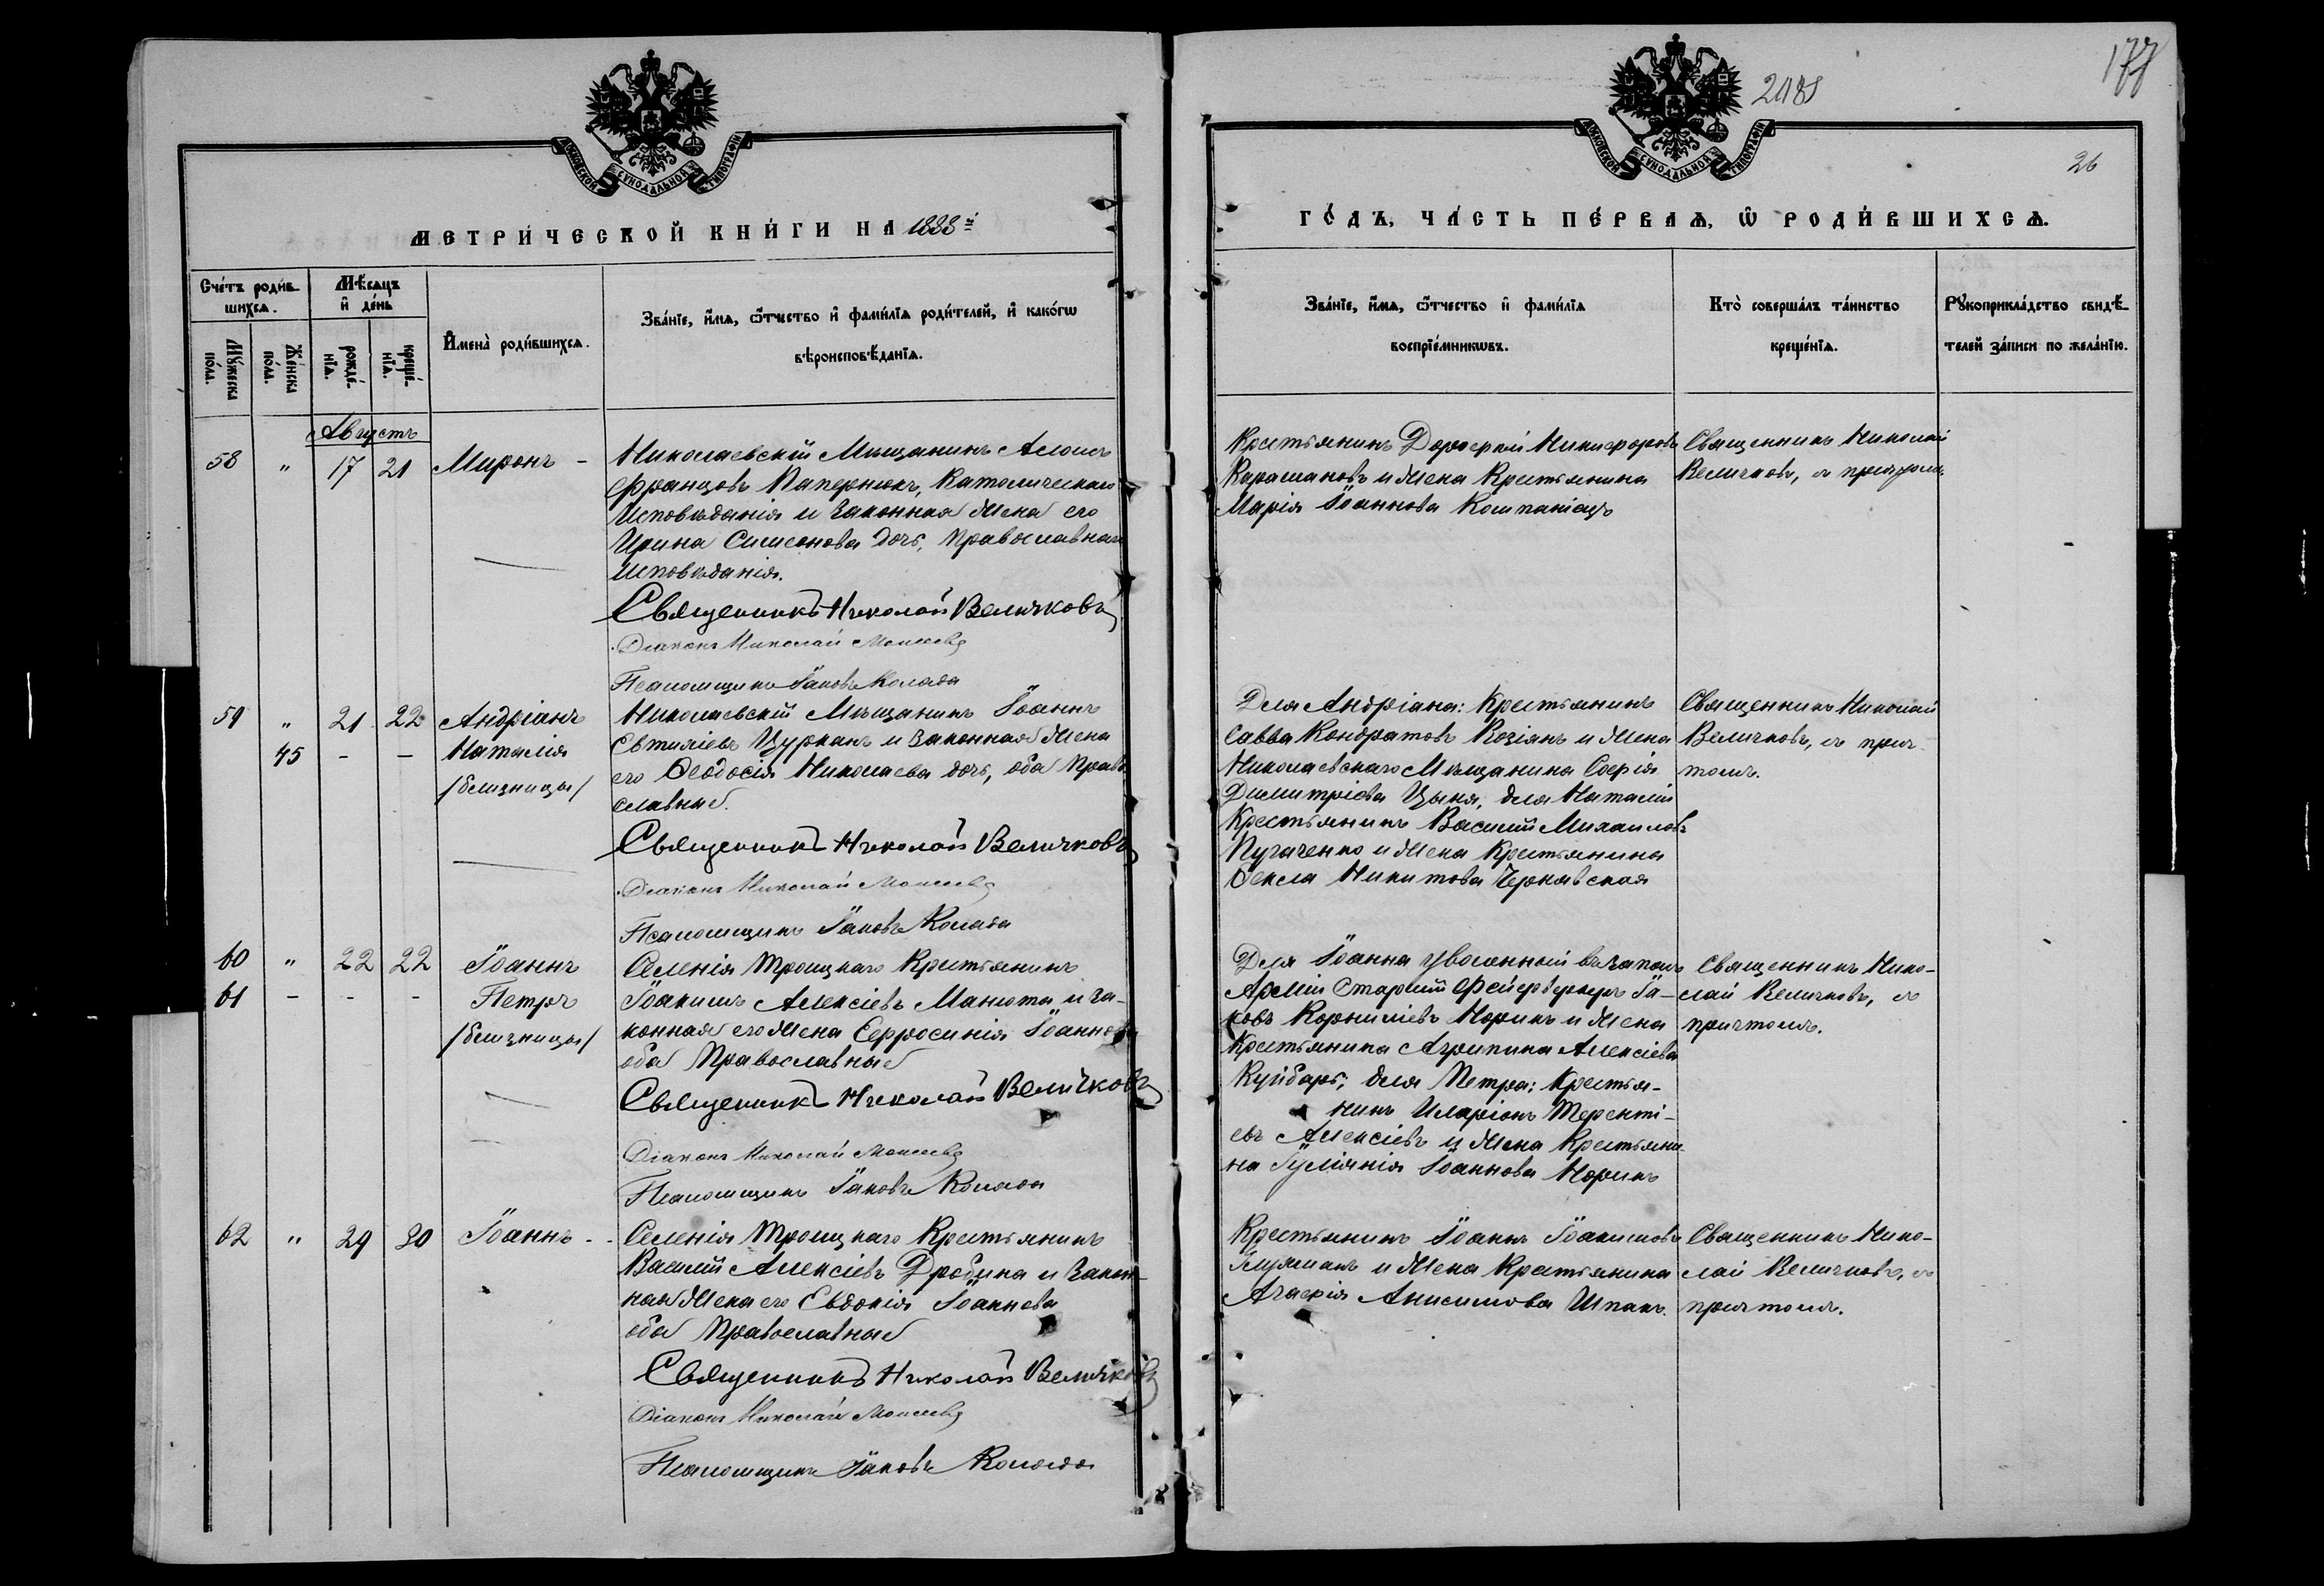 МОСКОВСКОЙ СѴНОДАЛЬНОЙ ТИПОГРАФІИ
МЕТРИ́ЧЕСКОЙ КНИ́ГИ НА 1888й
Сче́тъ роди́в-
шихсѧ.
Мѣ́сѧцъ
и҆ де́нь
Мꙋ́жеска
по́ла.
Же́нска
по́ла.
рожде́-
нїѧ.
креще́-
нїѧ.
И҆мена̀ роди́вшихсѧ.
Зва́нїе, и҆́мѧ, ѻ҆́тчество и҆ фами́лїѧ роди́телей, и҆ како́гѡ
вѣроисповѣ́данїѧ.
Августъ
58 " 17 21 Миронъ -
Николаевскій Мѣщанинъ Алоисъ
Францовъ Папернюкъ, Католическаго
Исповѣданія и Законная Жена его
Ирина Симеонова дочь, Православнаго
Исповѣданія.
Священникъ Николай Величковъ
Діаконъ Николай Моисеевъ
Псаломщикъ Іаковъ Колада
59 " 21 22 Андріанъ
45 - - Наталія
/близницы/
Николаевскій Мѣщанинъ Іоаннъ
Евтихіевъ Цурканъ и Законная Жена
его Ѳеодосія Николаева дочь, оба Право-
славные.
Священникъ Николай Величковъ
Діаконъ Николай Моисеевъ
Псаломщикъ Іаковъ Колада
60 " 22 22 Іоаннъ
61 - - - Петръ
/близницы/
Селенія Троицкаго Крестьянинъ
Іоакимъ Алексіевъ Манюта и за-
конная его Жена Евфросинія Іоаннова
оба Православные
Священникъ Николай Величковъ
Діаконъ Николай Моисеевъ
Псаломщикъ Іаковъ Колада
62 " 29 30 Іоаннъ -
Селенія Троицкаго Крестьянинъ
Василій Алексіевъ Дробина и Закон-
ная Жена его Евдокія Іоаннова
оба Православные
Священникъ Николай Величковъ
Діаконъ Николай Моисеевъ
Псаломщикъ Іаковъ Колада
177
26
МОСКОВСКОЙ СѴНОДАЛЬНОЙ ТИПОГРАФІИ
ГО́ДЪ, ЧА́СТЬ ПЕ́РВАѦ, Ѡ҆ РОДИ́ВШИХСѦ.
Зва́нїе, и҆́мѧ, ѻ҆́тчество и҆ фами́лїѧ
воспрїе́мникѡвъ.
Кто̀ соверша́лъ та́инство
креще́нїѧ.
Рꙋкоприкла́дство свидѣ́-
телей за́писи по жела́нїю.
Крестьянинъ Дороѳей Никифоровъ
Карамановъ и Жена Крестьянина
Марія Іоаннова Компаніецъ
Священникъ Николай
Величковъ, съ причтомъ.
Для Андріана: Крестьянинъ
Савва Кондратовъ Козіянъ и Жена
Николаевскаго Мѣщанина Софія
Димитріева Цыня, для Наталіи
Крестьянинъ Василій Михаиловъ
Пугаченко и Жена Крестьянина
Ѳекла Никитова Чернявская
Священникъ Николай
Величковъ, съ прич-
томъ.
Для Іоанна уволенный въ запасъ
Арміи Старшій Фейерверкеръ Іа-
ковъ Корниліевъ Норикъ и Жена
Крестьянина Агрипина Алексіева
для Петра: Крестья-
нинъ Иларіонъ Терентi-
евъ Алексіевъ и Жена Крестьяни-
на Іуліянія Іоаннова Норикъ
Священникъ Нико-
лай Величковъ, съ
причтомъ.
Крестьянинъ Іоаннъ Іоакимовъ
и Жена Крестьянина
Агафія Анисимова Шпакъ.
Священникъ Нико-
лай Величковъ, съ
причтомъ.